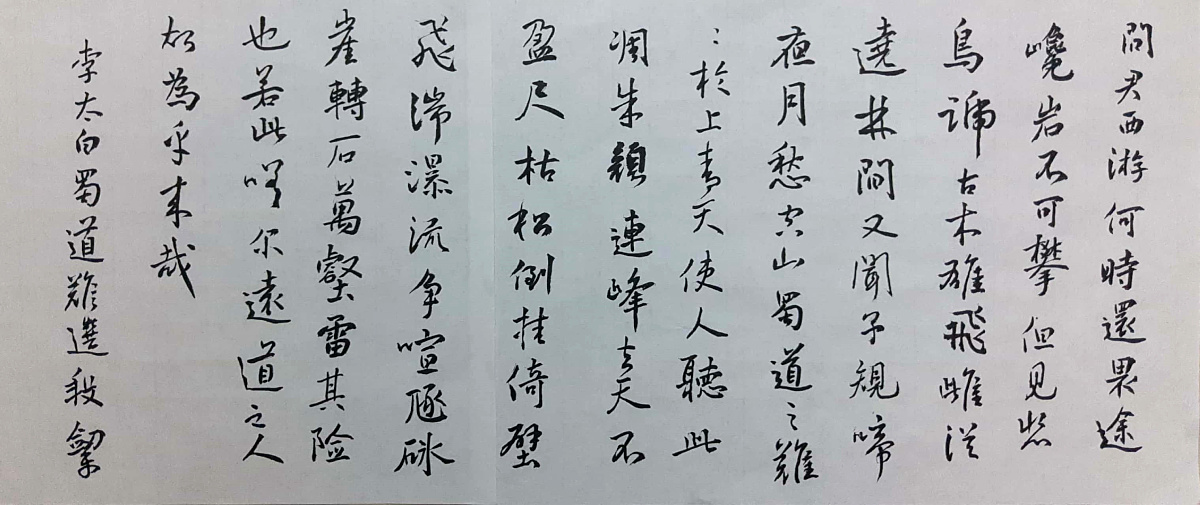 問君西游何時還畏途
巉岩不可攀但見悲
鳥號古木雄飛雌從
遶林間又聞子規啼
夜月愁空山蜀道之難
〻於上青天使人聽此
凋朱顏連峰去天不
盈尺枯松倒挂倚壁
飛湍瀑流争喧豗砯
崖轉石萬壑雷其险
也若此嗟尔遠道之人
胡為乎来哉
李太白蜀道難選